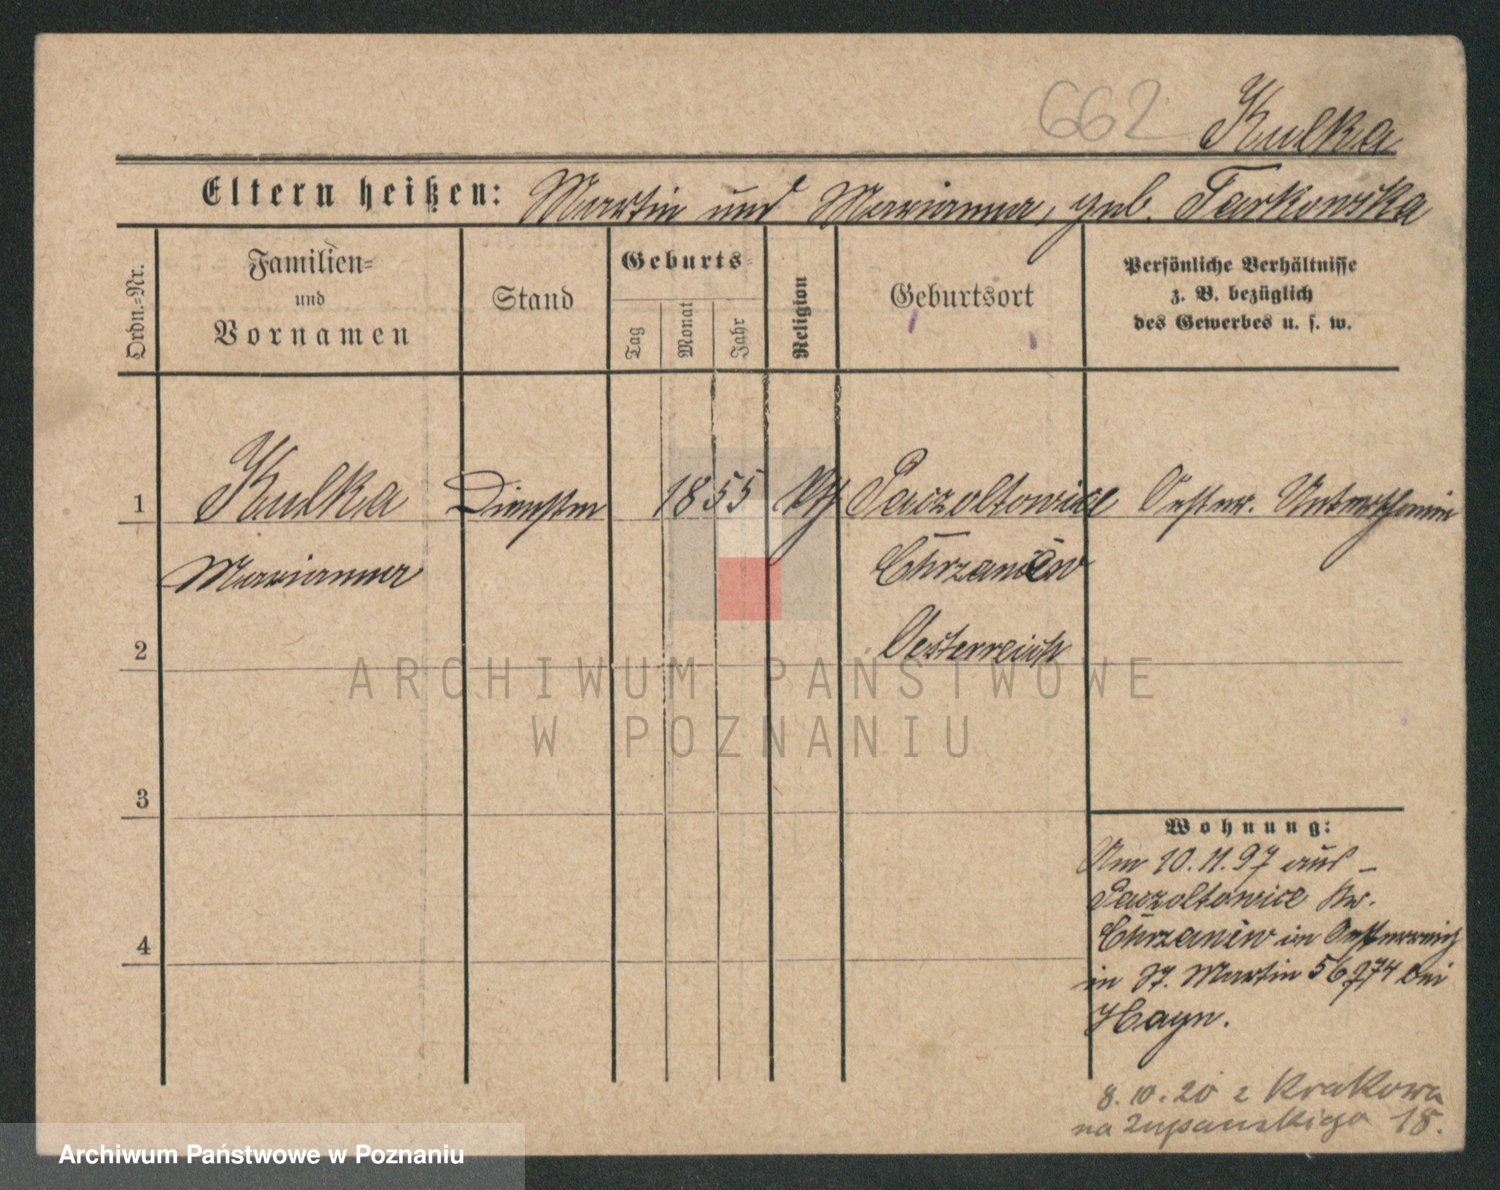 662 Kulka
Eltern heißen: Martin und Marianna, geb. Tarkowska
Ordn.-Nr.
Familien-
und
Vornamen
Stand
Geburts-
Tag
Monat
Jahr
Religion
Geburtsort
Persönliche Verhältnisse
z. B. bezüglich
des Gewerbes u. s. w.
1 Kulka 1855 Paczoltowice Oester. Unterthanin
Marianna Chrzanów
2 Oesterreich
ARCHIWUM PAŃSTWOWE
W POZNANIU
3
Wohnung:
Am 10.11.97 aus
Paczoltowice Kr.
4 Chrzanów in Oesterreich
in St. Martin 56 bei
Hayn.
8.10.20 z Krakowa
na Zupanskiego 18.
Archiwum Państwowe w Poznaniu